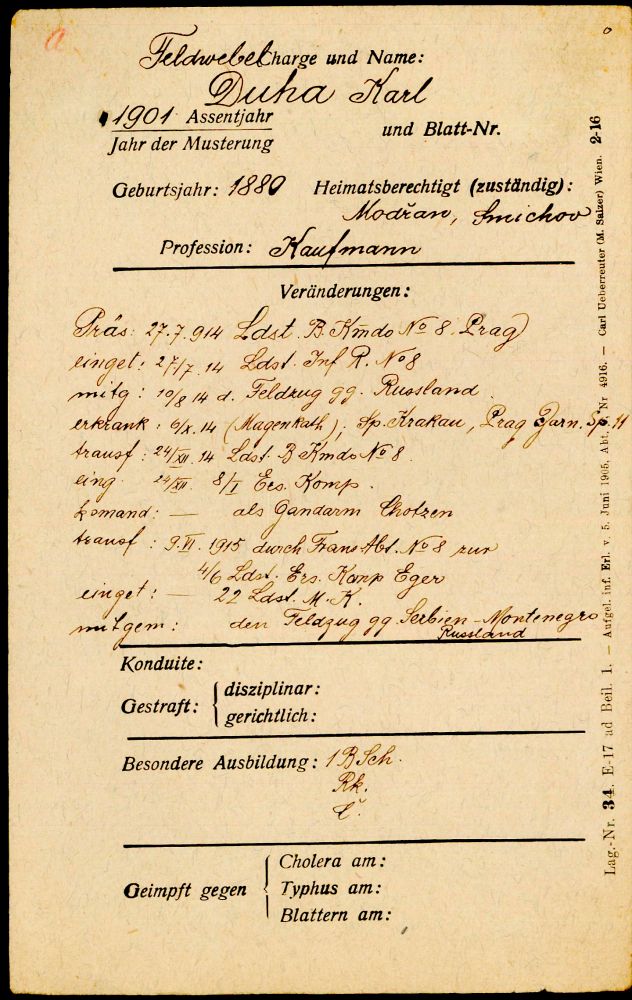 a
Feldwebel Charge und Name:
Duha Karl
1901 Assentjahr
Jahr der Musterung
und Blatt-Nr.
Geburtsjahr: 1880 Heimatsberechtigt (zuständig):
Modřan, Smichov
Profession: Kaufmann
Veränderungen:
Präs: 27.7.914 Ldst. B. Kmdo No 8, Prag
einget: 27/7. 14 Ldst. Inf R. No 8
mitg: 10/8 14 d. Feldzug gg. Russland.
erkrank: 6/X. 14 (Magenkath), Sp. Krakau, Prag Garn. Sp. 11
transf: 24/XII. 14 Ldst. B Kmdo No 8.
eing. 24/XII. 8/I Ers. Komp.
komand: — als Gandarm Chotzen
transf: 9.VI. 1915 durch Trans Abt. No 8 zur
4/6 Ldst. Ers. Komp Eger
einget: — 22 Ldst. M. K.
mitgem: den Feldzug gg. Serbien-Montenegro
Russland
Konduite:
Gestraft: disziplinar:
gerichtlich:
Besondere Ausbildung: 1 B Sch.
Rk.
Geimpft gegen Cholera am:
Typhus am:
Blattern am:
Lag.-Nr. 34. E-17 ad Beil. 1. — Aufgel. inf. Erl. v. 5. Juni 1905, Abt. Nr 4916. — Carl Ueberreuter (M. Salzer) Wien. 2-16